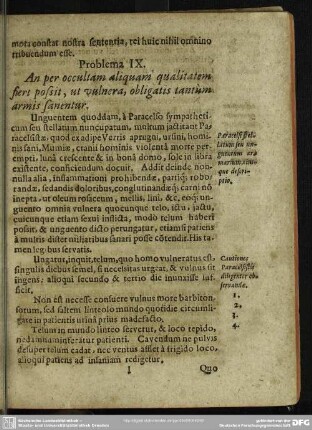 mota constat nostra sententia, rei huic nihil omnino
tribuendum esse.
Problema IX.
An per occultam aliquam qualitatem
fieri possit, ut vulnera, obligatis tantum
armis sanentur.
Unguentum quoddam, à Paracelso sympatheti-
cum seu stellatum nuncupatum, multum jactitant Pa-
racelsistæ: quod ex adipe Verris aprugni, ursini, homi-
nis sani, Mumiæ, cranii hominis violenta morte per-
empti, lunâ crescente & in bonâ domo, sole in libra
existente, conficiendum docuit. Addit deinde non-
nulla alia, inflammationi prohibendæ, partiq́; robo-
randæ, sedandis doloribus, conglutinandæq́; carni nõ
inepta, ut oleum rosaceum, mellis, lini, &c. eoq́; un-
guento omnia vulnera quocunque telo, ictu, jactu,
cuicunque etiam sexui inflicta, modo telum haberi
possit, & unguento dicto perungatur, etiamsi patiens
à multis distet milliaribus sanari posse cõtendit. His ta-
men legibus servatis.
Ungatur, inquit, telum, quo homo vulneratus est,
singulis diebus semel, si necessitas urgeat, & vulnus sit
ingens; alioqui secundo & tertio die inunxisse suf-
ficit.
Non est necesse consuere vulnus more barbiton-
sorum, sed saltem linteolo mundo quotidie circumli-
gare in patientis urinâ prius madefacto.
Telum in mundo linteo servetur, & loco tepido,
ne damna inferatur patienti. Cavendum ne pulvis
desuper telum cadat, nec ventus asset à frigido loco,
alioqui patiens ad insaniam redigetur.
I
Quo
Paracelsi stel-
latum seu un-
guentum ar-
marium ejus-
que descri-
ptio.
Cautiones
Paracelsistis
diligenter ob-
servandæ.
1.
2.
3.
4.